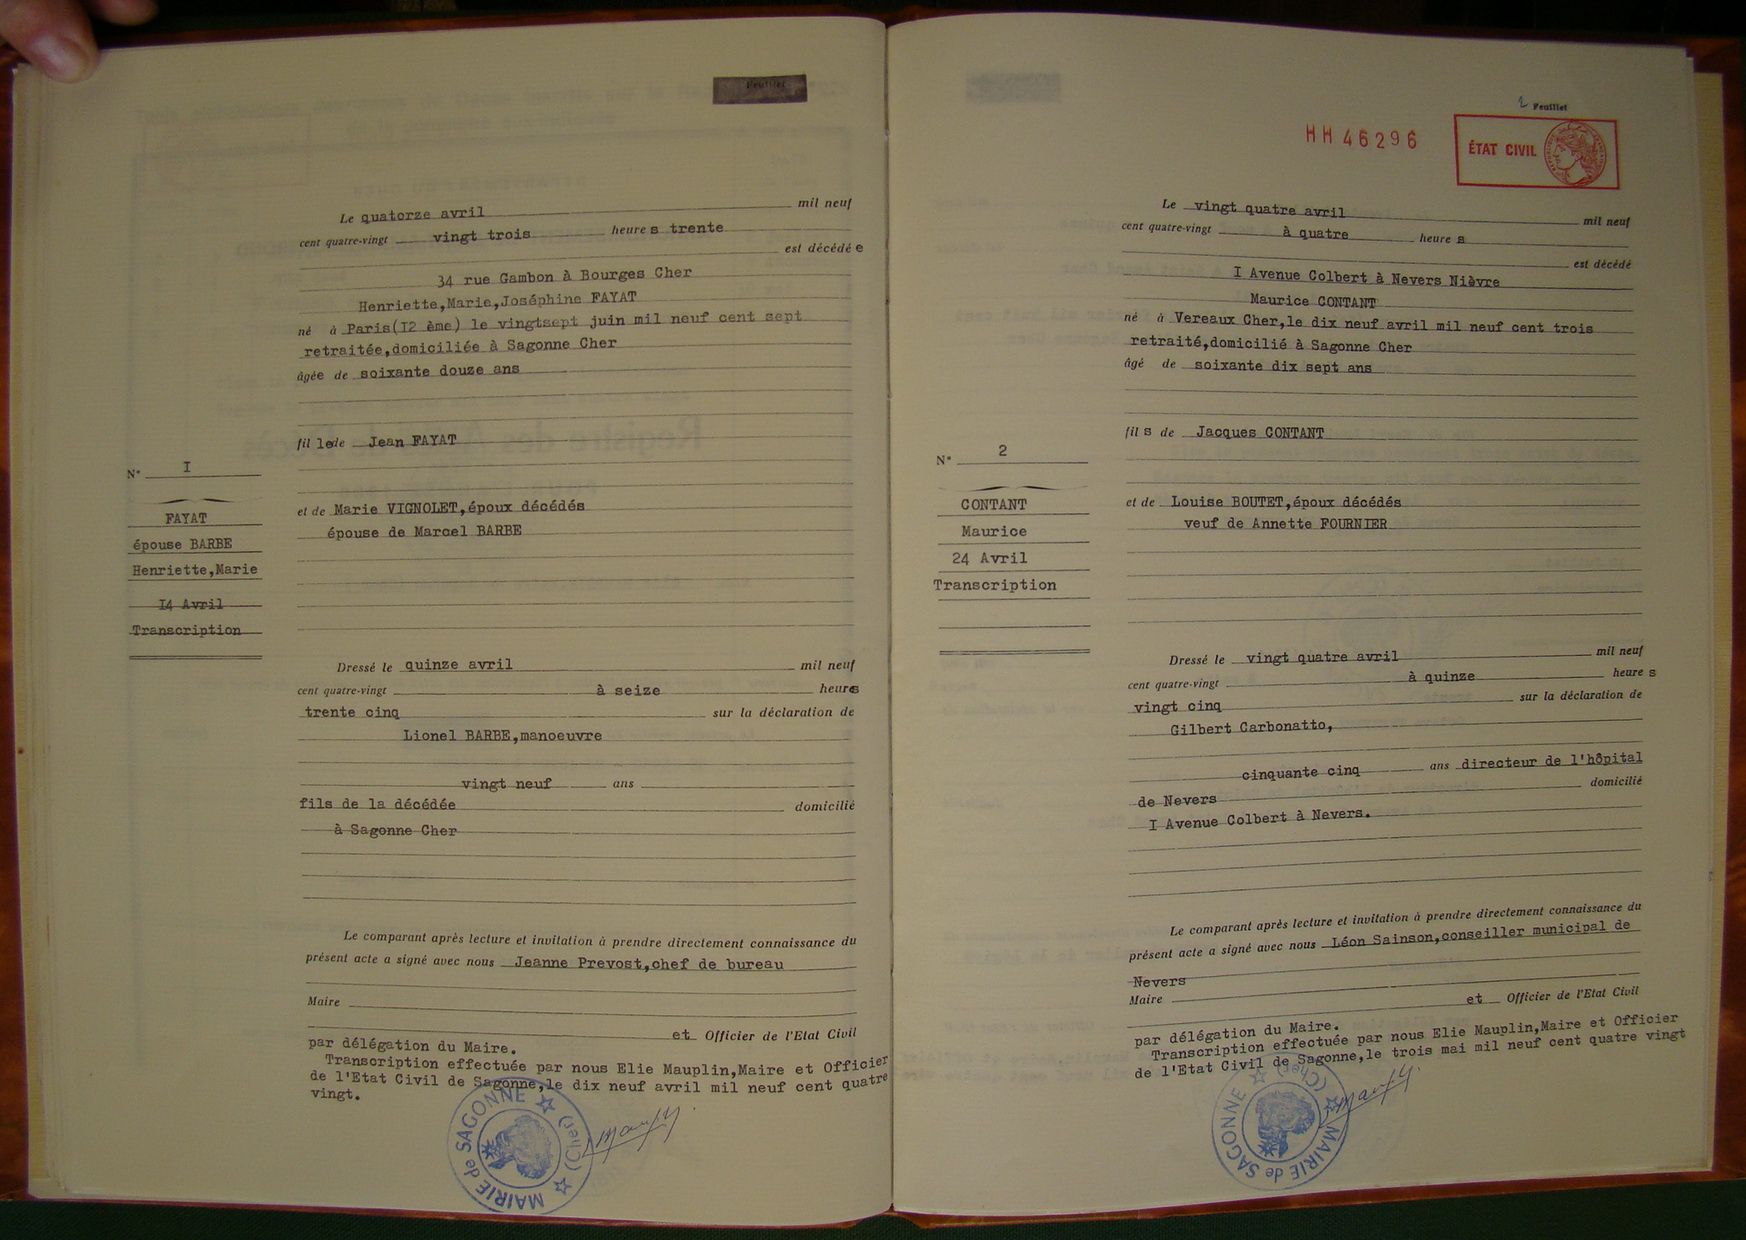 Feuillet
Le quatorze avril mil neuf
cent quatre-vingt vingt trois heures trente
est décédée
34 rue Gambon à Bourges Cher
Henriette,Marie,Joséphine FAYAT
né à Paris(I2 ème) le vingtsept juin mil neuf cent sept
retraitée,domiciliée à Sagonne Cher
âgée de soixante douze ans
fil lede Jean FAYAT
N° I
FAYAT
épouse BARBE
Henriette,Marie
I4 Avril
Transcription
et de Marie VIGNOLET,époux décédés
épouse de Marcel BARBE
Dressé le quinze avril mil neuf
cent quatre-vingt à seize heures
trente cinq sur la déclaration de
Lionel BARBE,manoeuvre
vingt neuf ans
fils de la décédée domicilié
à Sagonne Cher
Le comparant après lecture et invitation à prendre directement connaissance du
présent acte a signé avec nous Jeanne Prevost,chef de bureau
Maire
et Officier de l'Etat Civil
par délégation du Maire.
Transcription effectuée par nous Elie Mauplin,Maire et Officier
de l'Etat Civil de Sagonne,le dix neuf avril mil neuf cent quatre
vingt.
MAIRIE de SAGONNE (Cher)
2 Feuillet
HH 46296
ÉTAT CIVIL
Le vingt quatre avril mil neuf
cent quatre-vingt à quatre heure s
est décédé
I Avenue Colbert à Nevers Nièvre
Maurice CONTANT
né à Vereaux Cher,le dix neuf avril mil neuf cent trois
retraité,domicilié à Sagonne Cher
âgé de soixante dix sept ans
fils de Jacques CONTANT
N° 2
CONTANT
Maurice
24 Avril
Transcription
et de Louise BOUTET,époux décédés
veuf de Annette FOURNIER
Dressé le vingt quatre avril mil neuf
cent quatre-vingt à quinze heure s
vingt cinq sur la déclaration de
Gilbert Carbonatto,
cinquante cinq ans directeur de l'hôpital
de Nevers domicilié
I Avenue Colbert à Nevers.
Le comparant après lecture et invitation à prendre directement connaissance du
présent acte a signé avec nous Léon Sainson,conseiller municipal de
Nevers
Maire et Officier de l'Etat Civil
par délégation du Maire.
Transcription effectuée par nous Elie Mauplin,Maire et Officier
de l'Etat Civil de Sagonne,le trois mai mil neuf cent quatre vingt
MAIRIE de SAGONNE (Cher)